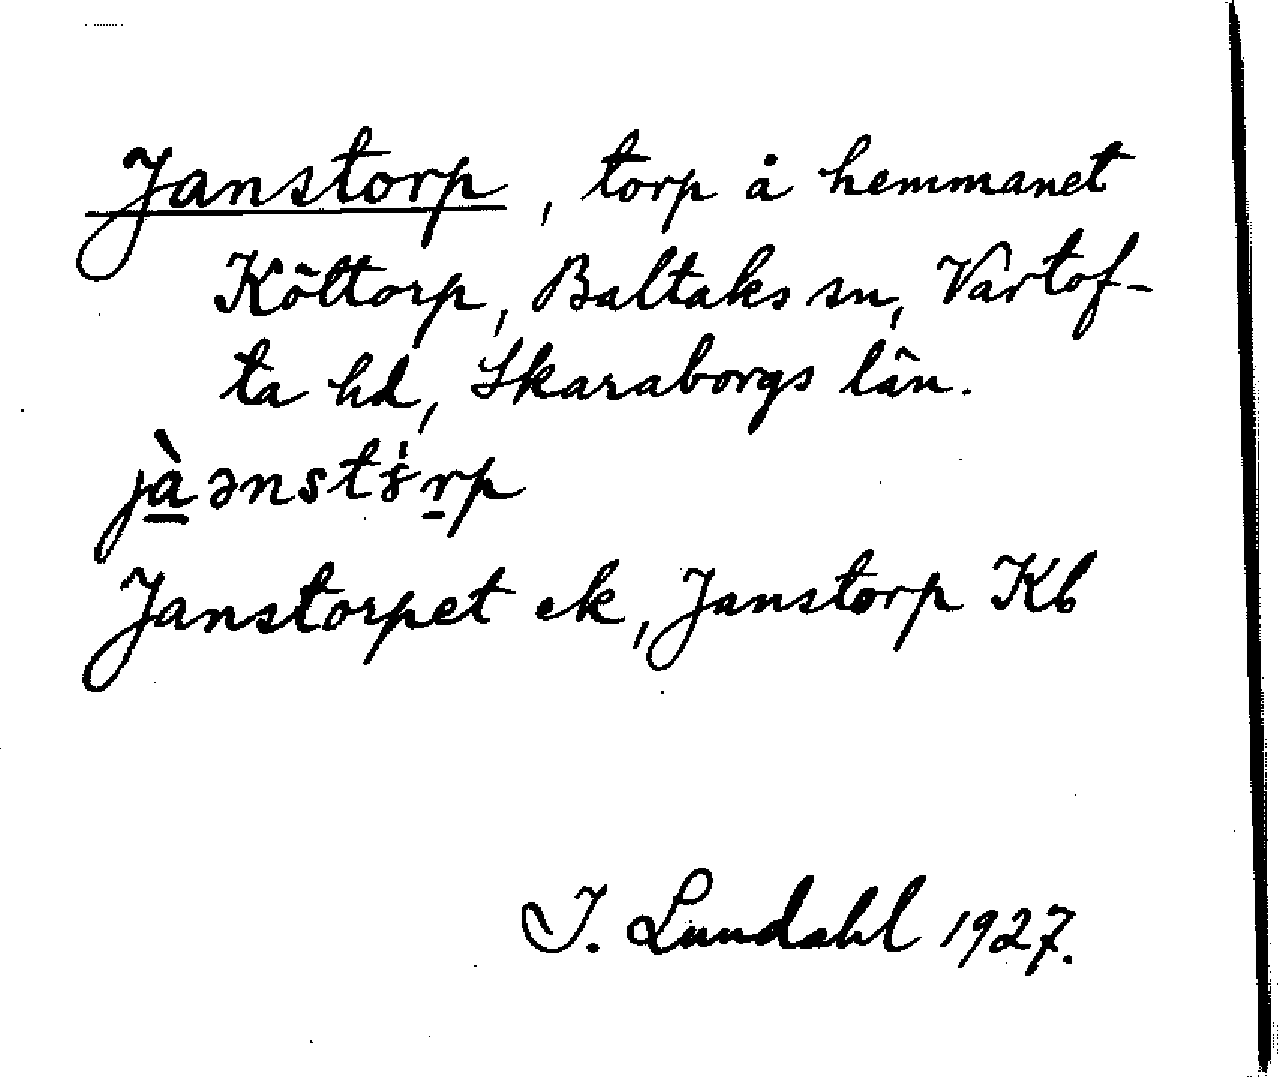 Janstorp, torp å hemmanet
Költorp, Baltaks sn, Vartof-
ta hd, Skaraborgs län.
Janstorpet ek, Janstorp Kb
I. Lundahl 1927.